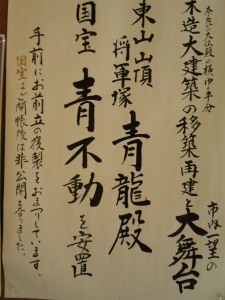 奈良の大仏殿の横巾の半分
木造大建築の移築再建と大舞台
市内一望の
東山山頂
将軍塚 青龍殿
国宝 青不動を安置
手前にお前立の複製をおまつりしています。
国宝はご開帳後は非公開となりました。